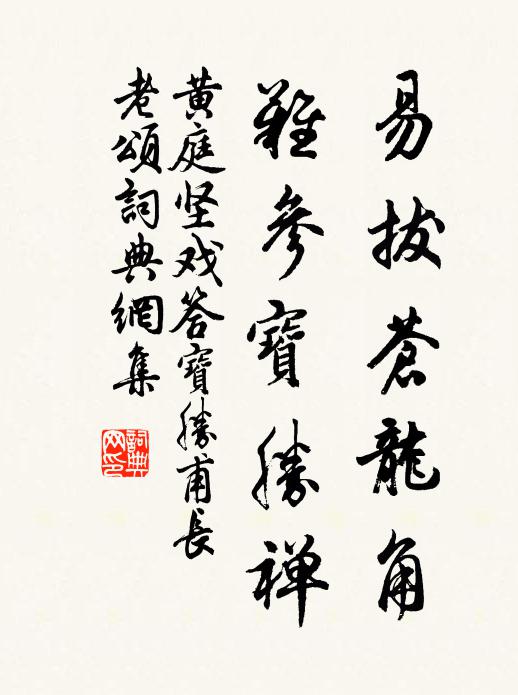 易拔蒼龍角
難參寶勝禅
黄庭坚戏答寶勝甫長
老頌詞典網集
詞典网印